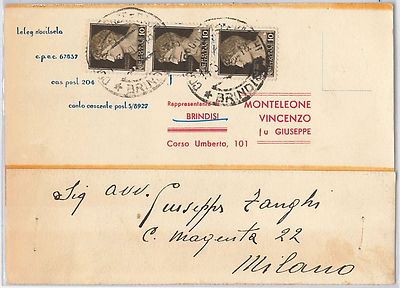 teleg. sicilsele
c.p.e.c. 67837
cas post 204
conto corrente post. 5/8927
10
10
10
BRINDISI
BRINDISI
Rappresentante
BRINDISI
MONTELEONE
VINCENZO
fu GIUSEPPE
Corso Umberto, 101
Sig avv.
Giuseppe Zanghi
C. Magenta 22
Milano